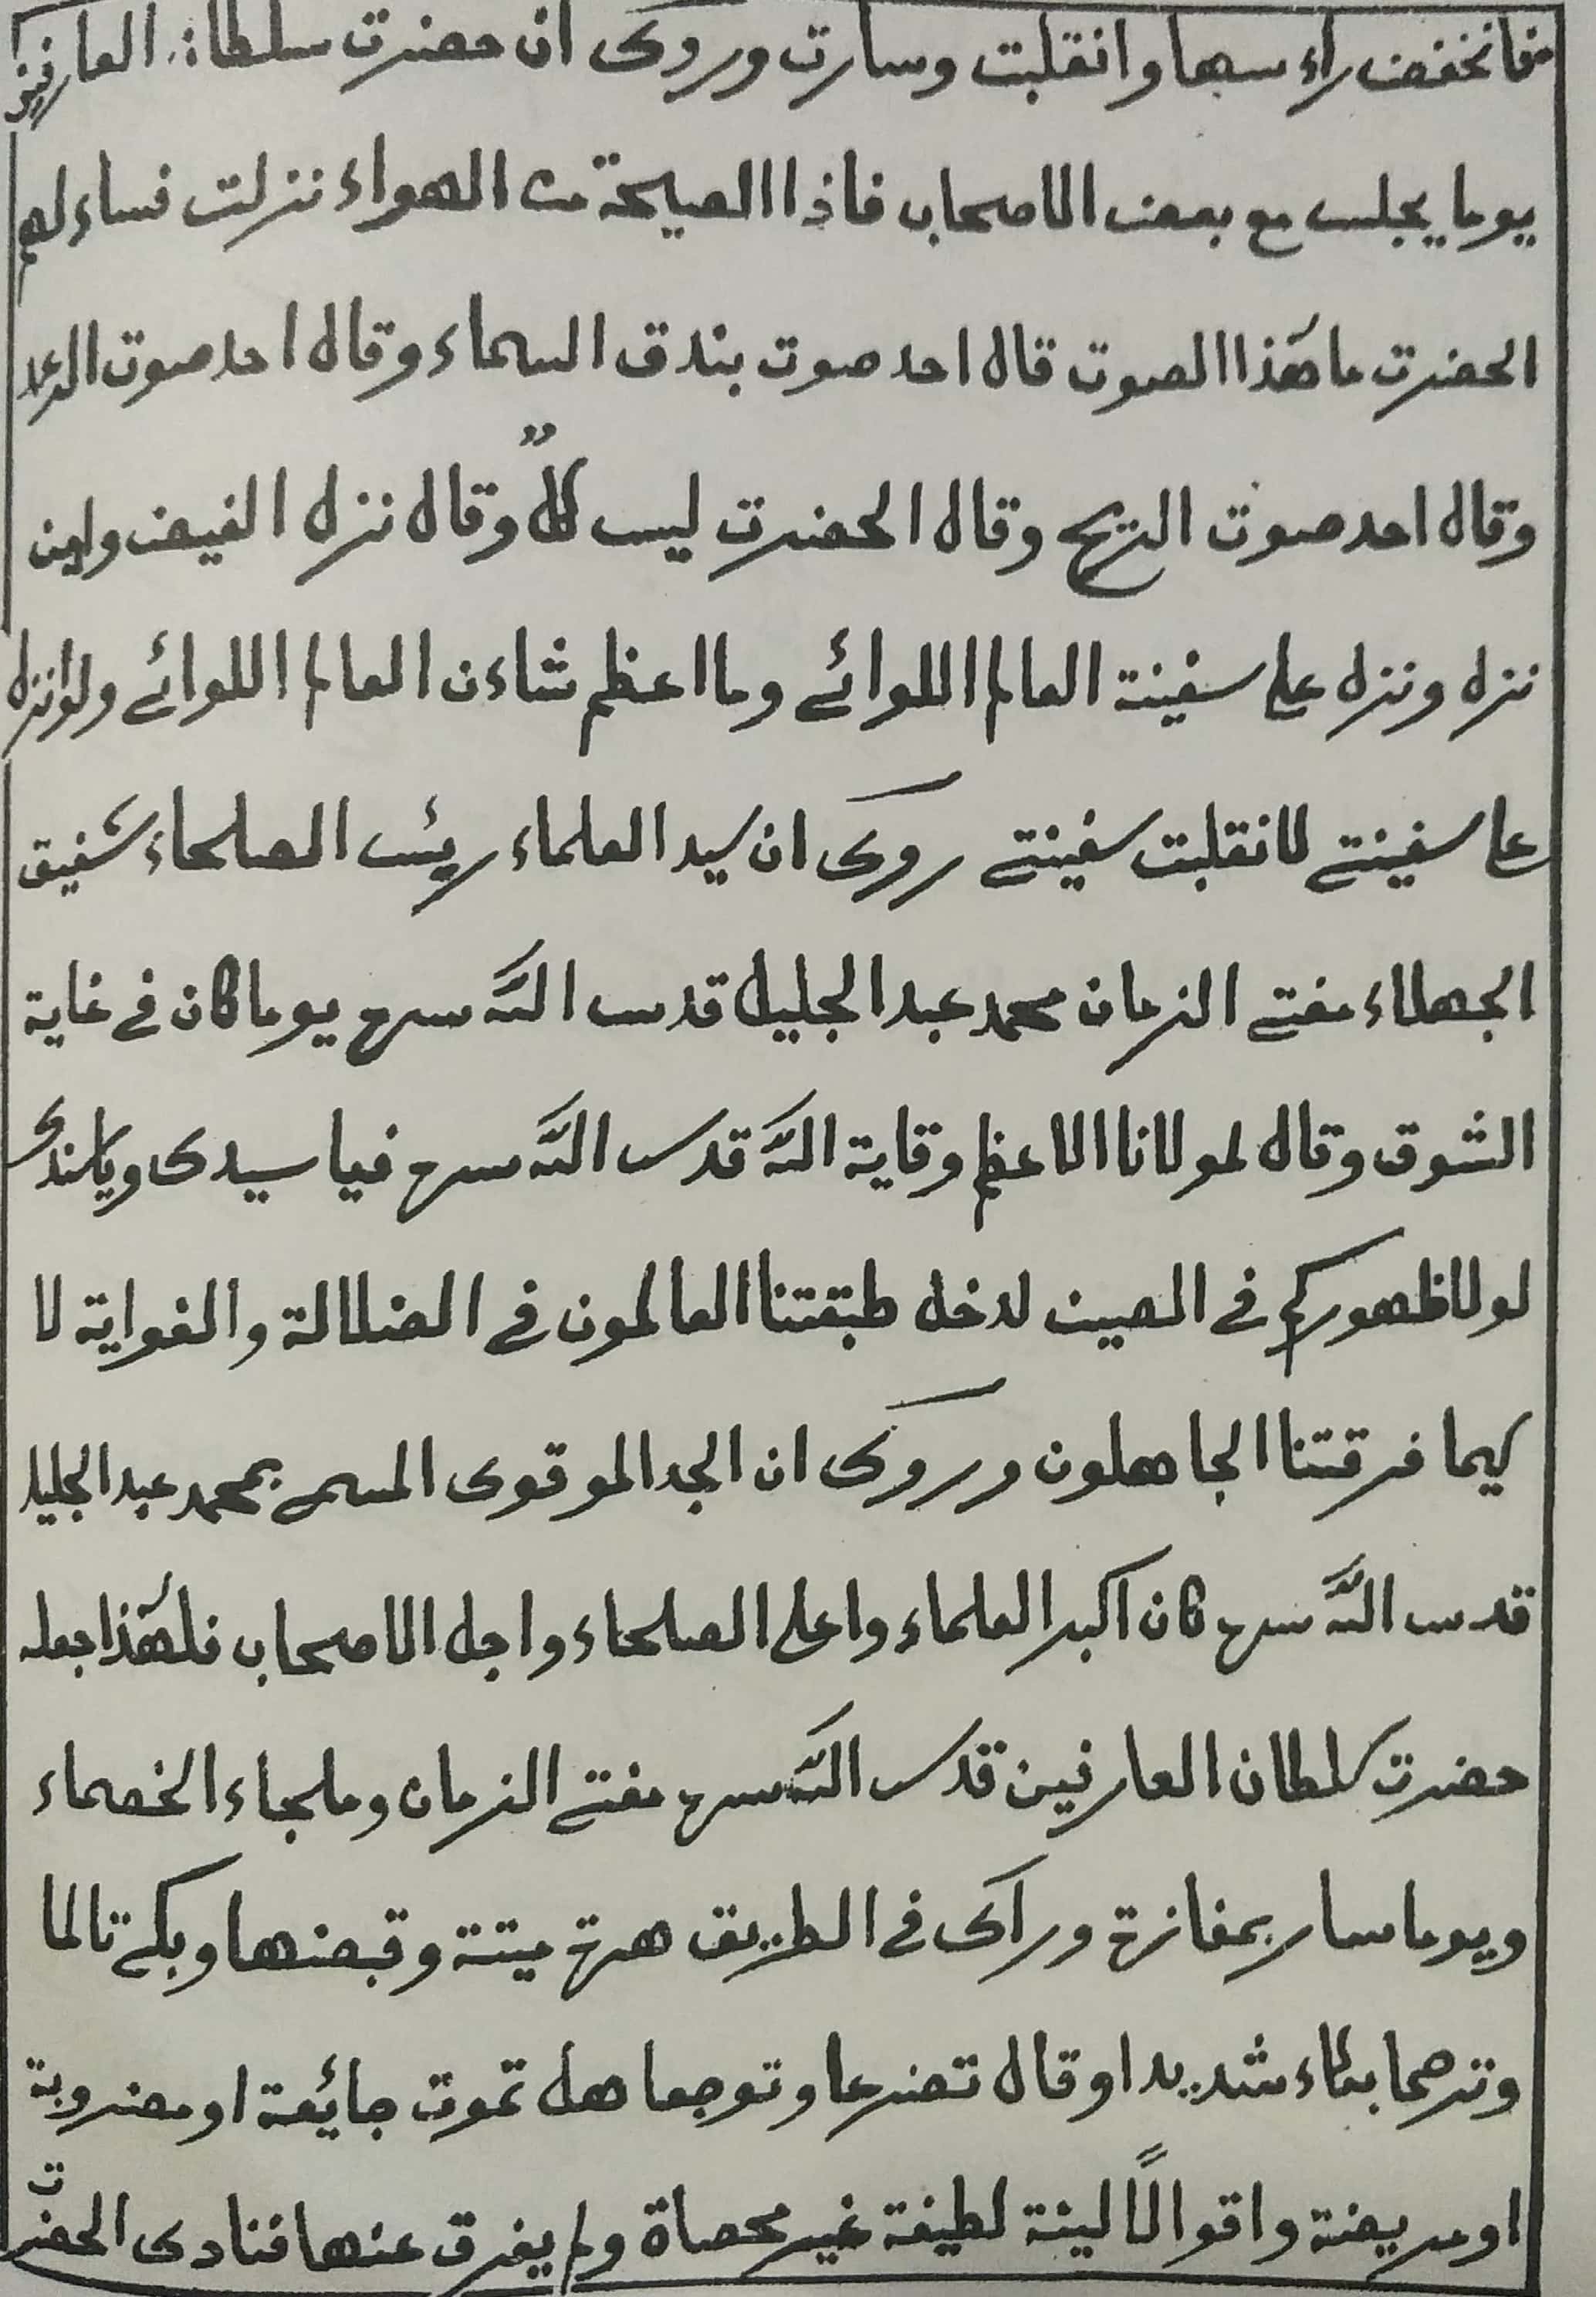 فانخفض راء سها وانقلبت وسارت وروى ان حضرت سلطان العارفين
يوما يجلس مع بعض الاصحاب فاذا الصيحة من الهواء نزلت فساء لهم
الحضرت ما هٰذا الصوت قال احد صوت بندق السماء وقال احد صوت الرعد
وقال احد صوت الريح وقال الحضرت ليس كلّ وقال نزل الفيض واين
نزل ونزل على سفينة العالم اللوائے وما اعظم شاءن العالم اللوائے ولو انزل
على سفينتے لانقلبت سفينتے روى ان سيد العلماء ريئس الصلحاء شفيق
الجهلاء مفتے الزمان محمد عبد الجليل قدس اللّه سره يوما كان فے غاية
الشوق وقال لمولانا الاعظم وقاية اللّه قدس اللّه سره فيا سيدى ويا سندى
لولا ظهوركم فے الصين لدخل طبقتنا العالمون فے الضلالة والغواية لا
كيما فرقتنا الجاهلون وروى ان الجد الموقوى المسمے بمحمد عبد الجليل
قدس اللّه سره كان اكبر العلماء واعلى الصلحاء واجل الاصحاب فلهٰذا جعله
حضرت سلطان العارفين قدس اللّه سره مفتے الزمان وملجاء الخصماء
ويوما سار بمفازة وراى فے الطريق هرة ميتة وقبضها وبكے تالما
وترحما بكاء شديدا وقال تضرعا وتوجعا هل تموت جائعة او مضروبة
او مريضة واقوالًا لينة لطيفة غير محصاة ولم يفرق عنها فنادى الحضرت